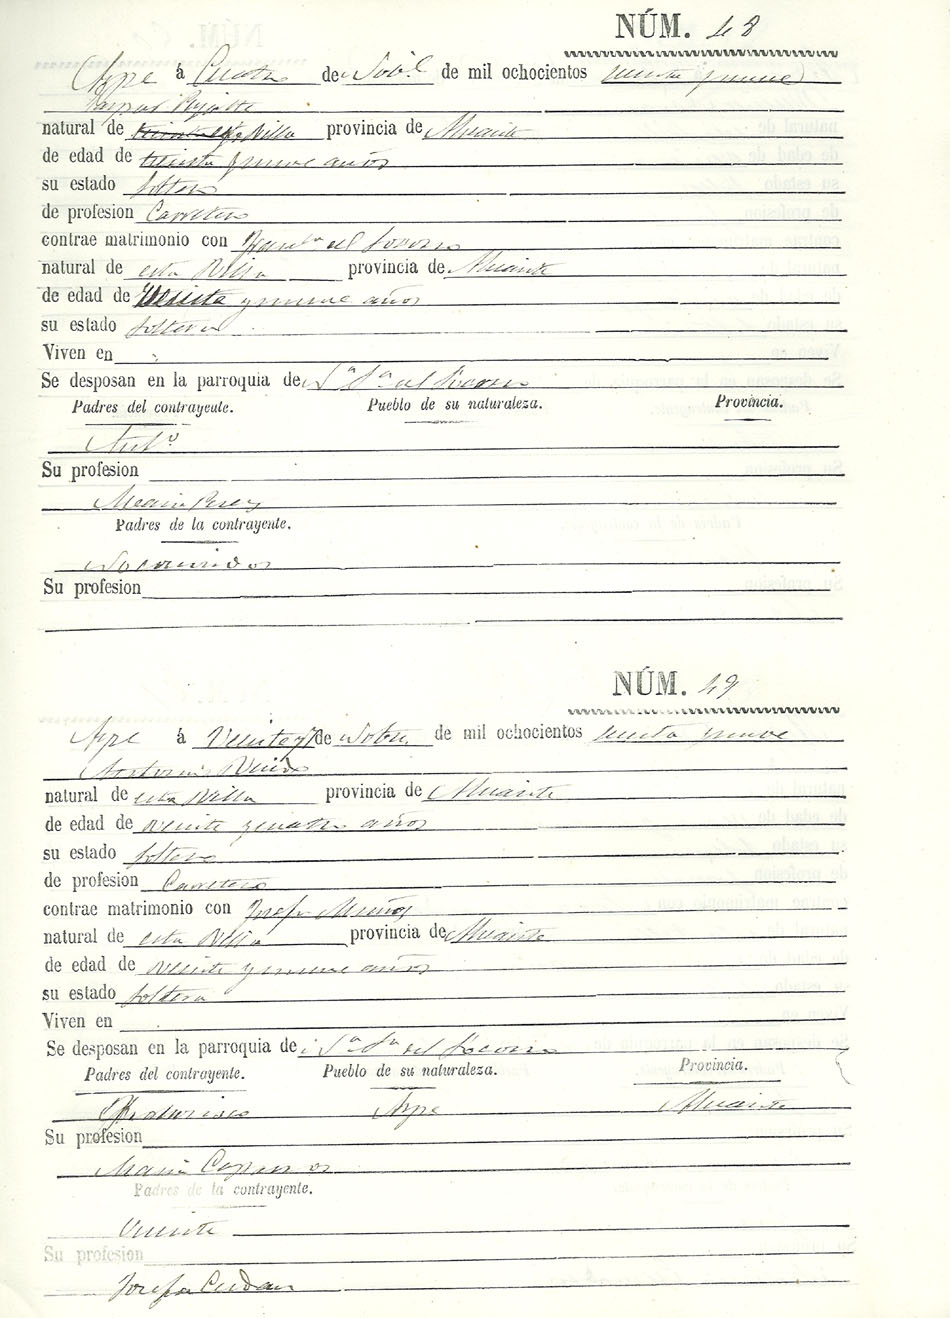 NÚM. 48
Aspe á Cuatro de Nobe. de mil ochocientos
Gaspar
natural de Villa provincia de Alicante
de edad de treinta y nueve años
su estado soltero
de profesion Carretero
contrae matrimonio con del Socorro
natural de esta Villa provincia de Alicante
de edad de y nueve años
su estado soltera
Viven en
Se desposan en la parroquia de Nª Sª del Socorro
Padres del contrayente. Pueblo de su naturaleza. Provincia.
Antº
Su profesion
Maria Perez
Padres de la contrayente.
No conocidos
Su profesion
NÚM. 49
Aspe á de Nobre. de mil ochocientos y nueve
Antonio
natural de esta Villa provincia de Alicante
de edad de veinte y cuatro años
su estado soltero
de profesion Carretero
contrae matrimonio con Josefa Muñoz
natural de esta Villa provincia de Alicante
de edad de veinte y nueve años
su estado soltera
Viven en
Se desposan en la parroquia de Nª Sª del Socorro
Padres del contrayente. Pueblo de su naturaleza. Provincia.
Francisco Aspe Alicante
Su profesion
Maria
Padres de la contrayente.
Vicente
Su profesion
Josefa